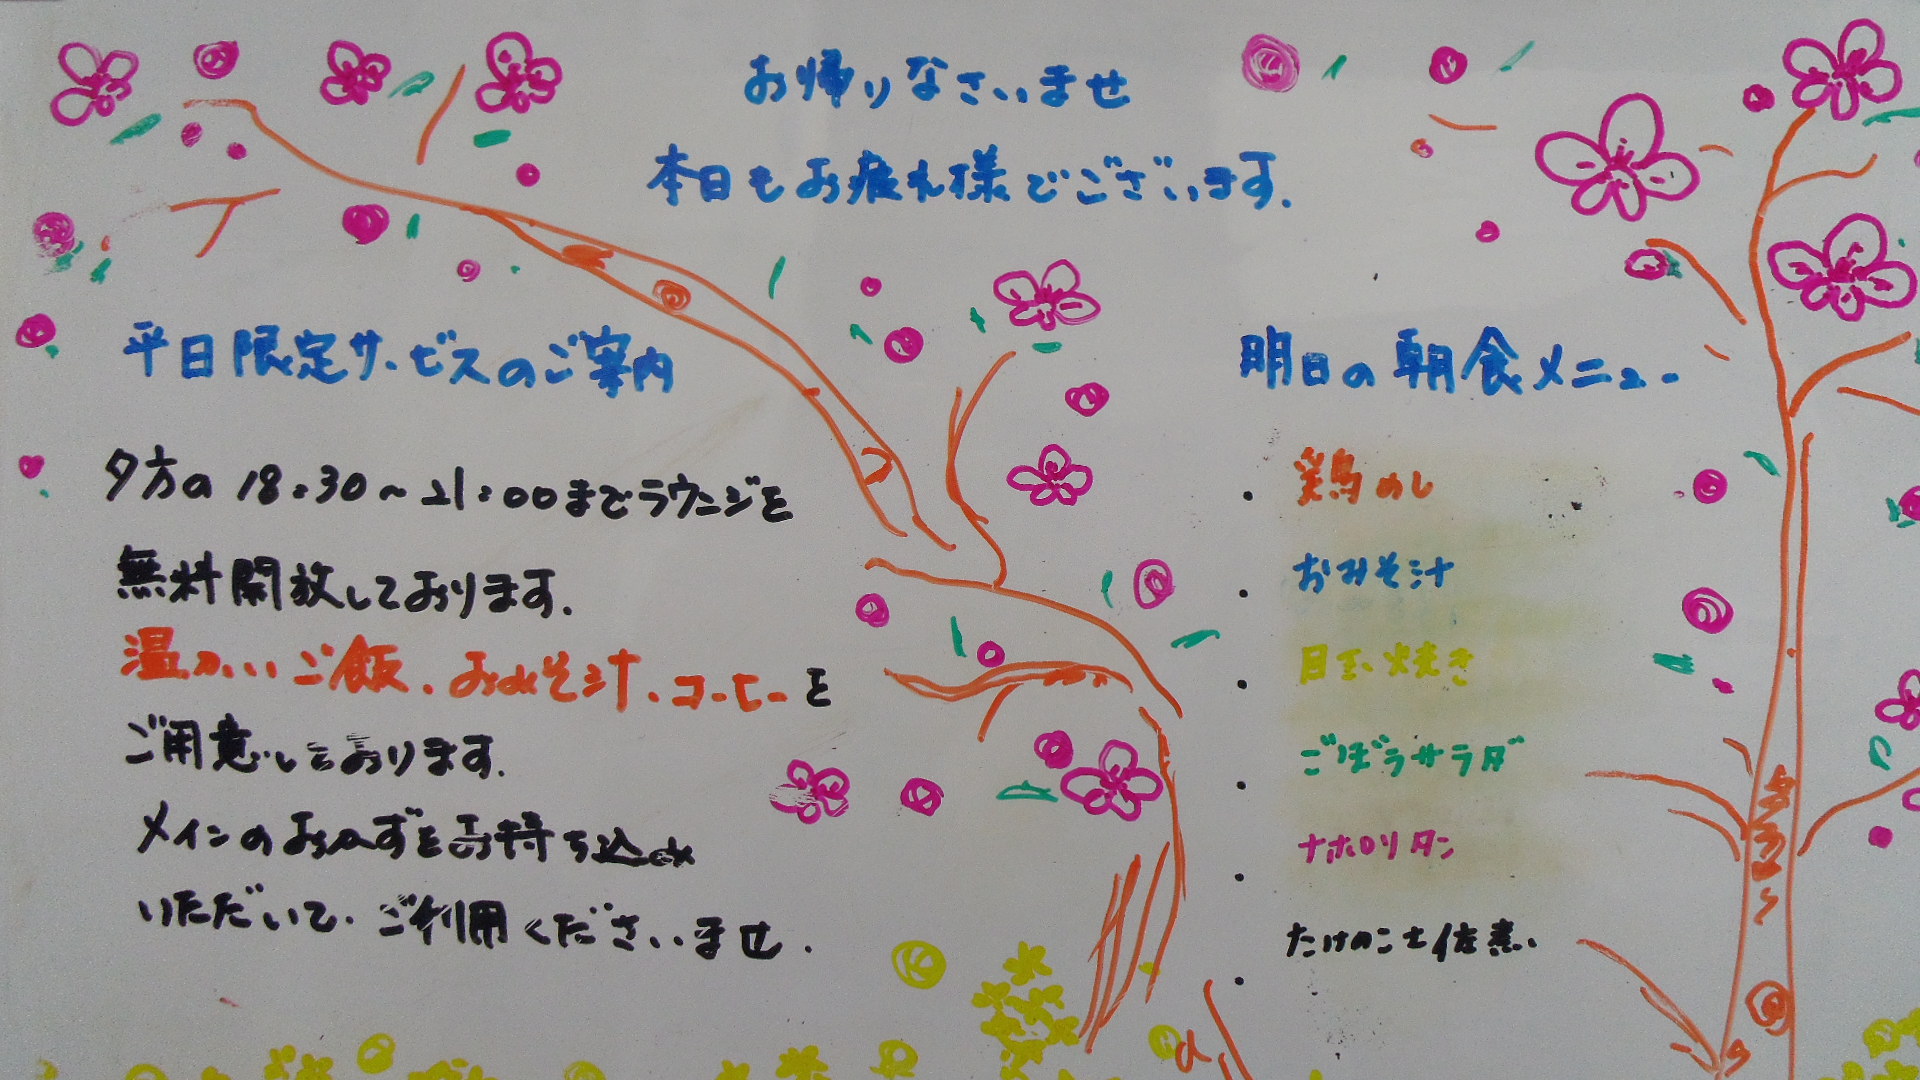 お帰りなさいませ
本日もお疲れ様でございます.
平日限定サービスのご案内
夕方の18:30～21:00までラウンジを
無料開放しております.
温かいご飯.おみそ汁.コーヒーを
ご用意しております.
メインのおかずをお持ち込み
いただいて.ご利用くださいませ.
明日の朝食メニュー
・鶏めし
・おみそ汁
・目玉焼き
・ごぼうサラダ
・ナポリタン
・たけのこ土佐煮